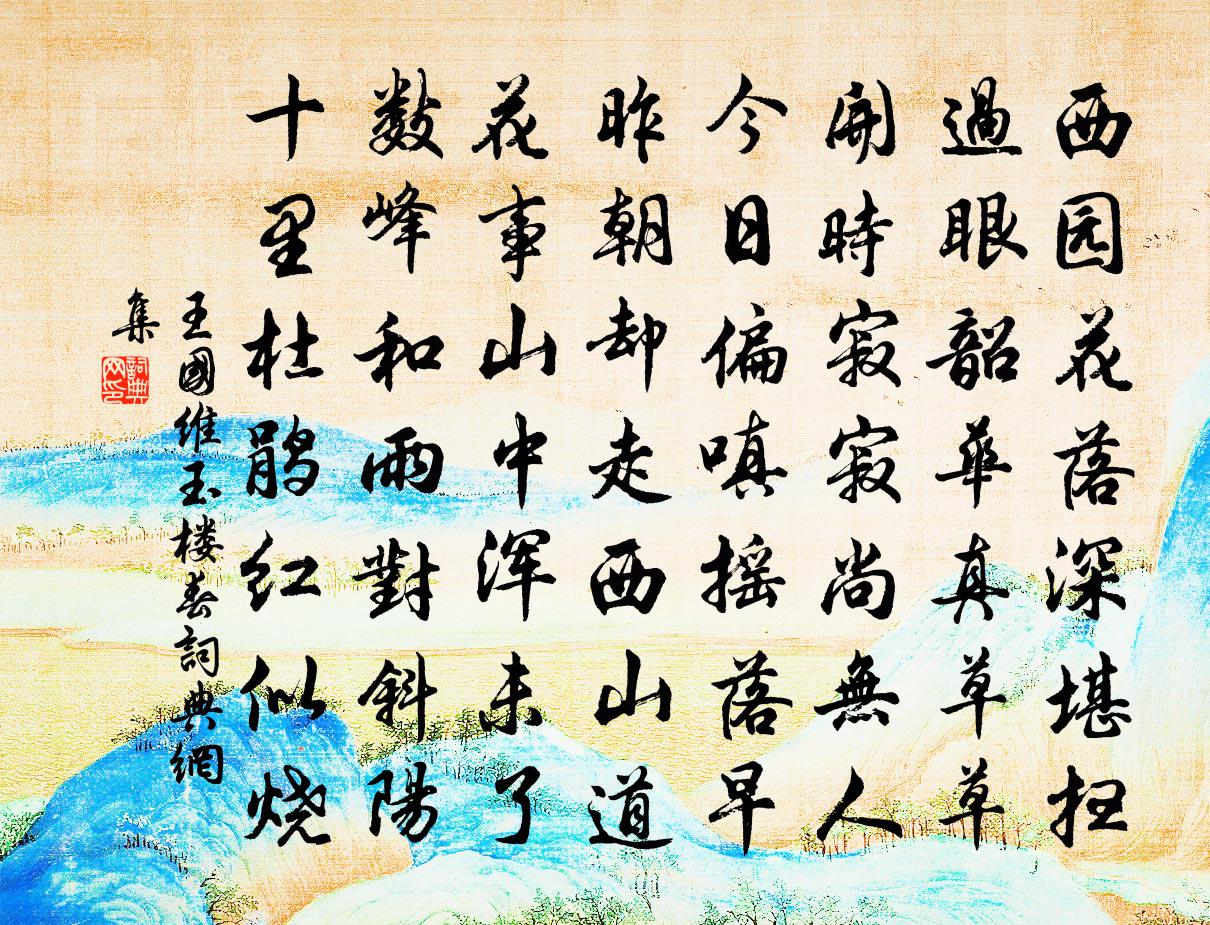 西园花落深堪扫
過眼韶華真草草
開時寂寂尚無人
今日偏嗔摇落早
昨朝却走西山道
花事山中浑未了
数峰和雨對斜陽
十里杜鹃红似烧
王國維玉楼春詞典網
集
詞典
网印